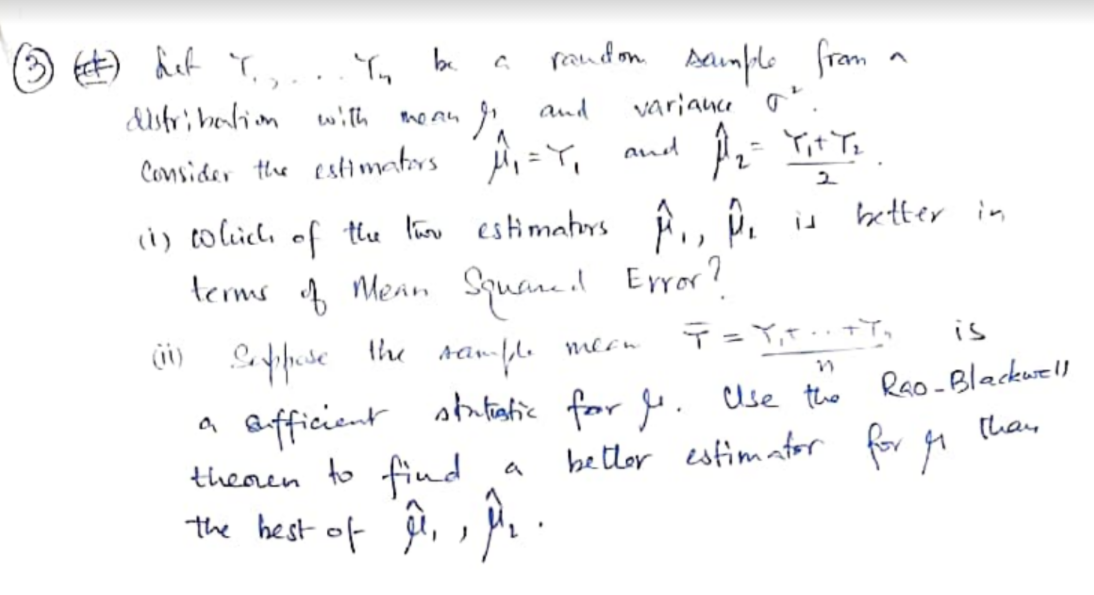 ③ Let Y₁, . . . Yₙ be a random sample from a
distribution with mean μ and variance σ².
Consider the estimators μ̂₁ = Y₁ and μ̂₂ = (Y₁+Y₂)/2 .
(i) Which of the two estimators μ̂₁, μ̂₂ is better in
terms of Mean Squared Error?
(ii) Suppose the sample mean Ȳ = (Y₁+ . . +Yₙ)/n is
a sufficient statistic for μ. Use the Rao-Blackwell
theorem to find a better estimator for μ than
the best of μ̂₁, μ̂₂ .